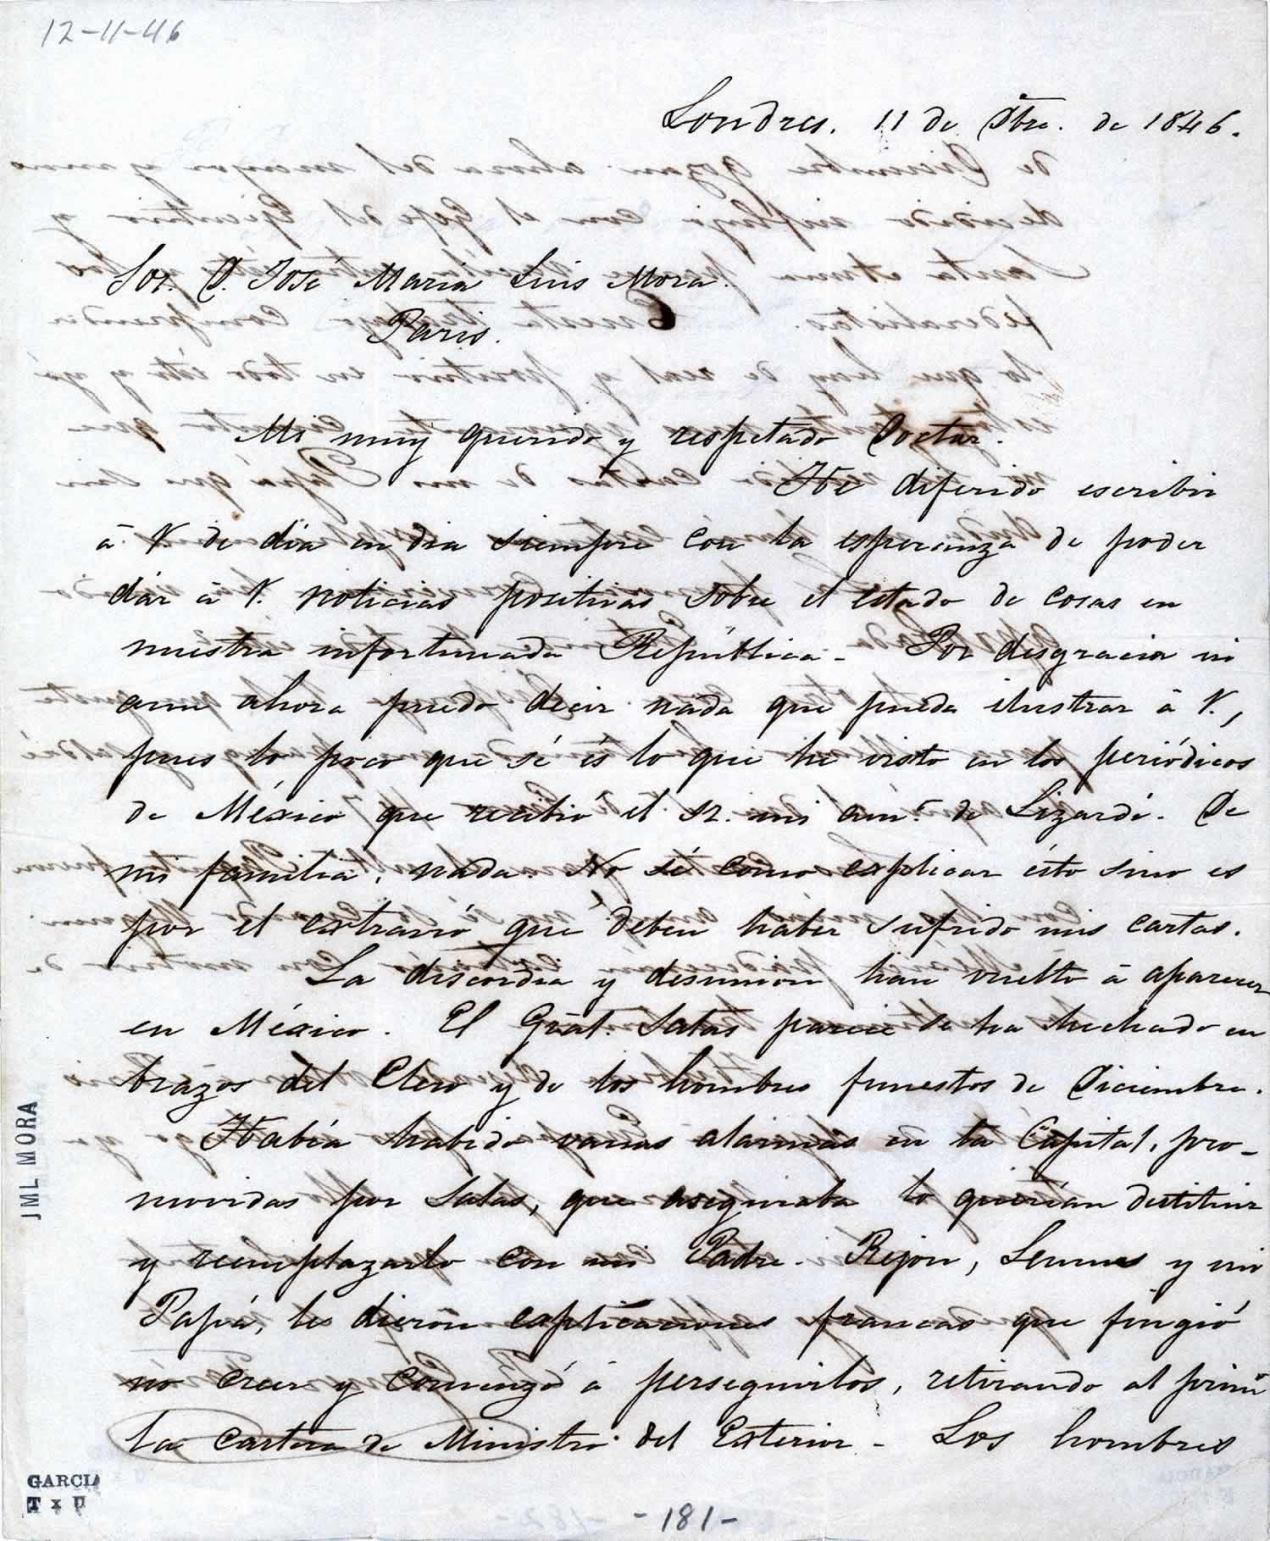 12-11-46
Londres. 11 de Dbre. de 1846.
Sor. D. José María Luis Mora.
Paris.
Mi muy querido y respetado Doctor.
He diferido escribir
á V. de día en dia siempre con la esperanza de poder
dár á V. noticias positivas sobre el estado de cosas en
nuestra infortunada República. Por disgracia ni
aun ahora puedo decir nada que pueda ilustrar á V.,
pues lo poco que sé és lo que he visto en los periódicos
de México que recibió el Sr. mi am.º de Lizardi. De
mi familia, nada. No sé como explicar ésto sino es
por el extravió que deben haber sufrido mis cartas.
La discordia y desunion han vuelto á aparecer
en México. El Gral. Salas parece se ha hechado en
brazos del Clero y de los hombres funestos de Diciembre.
Había habido varias alarmas en la Capital, pro-
movidas por Salas, que aseguraba lo querían destituir
y reemplazarlo con mi Padre. Rejon, Lemus y mi
Papá, le dieron explicaciones francas que fingió
no creer y comenzó á perseguirlos, retirando al prim.º
la cartera de Ministro del Exterior. Los hombres
JML MORA
GARCIA
-181-